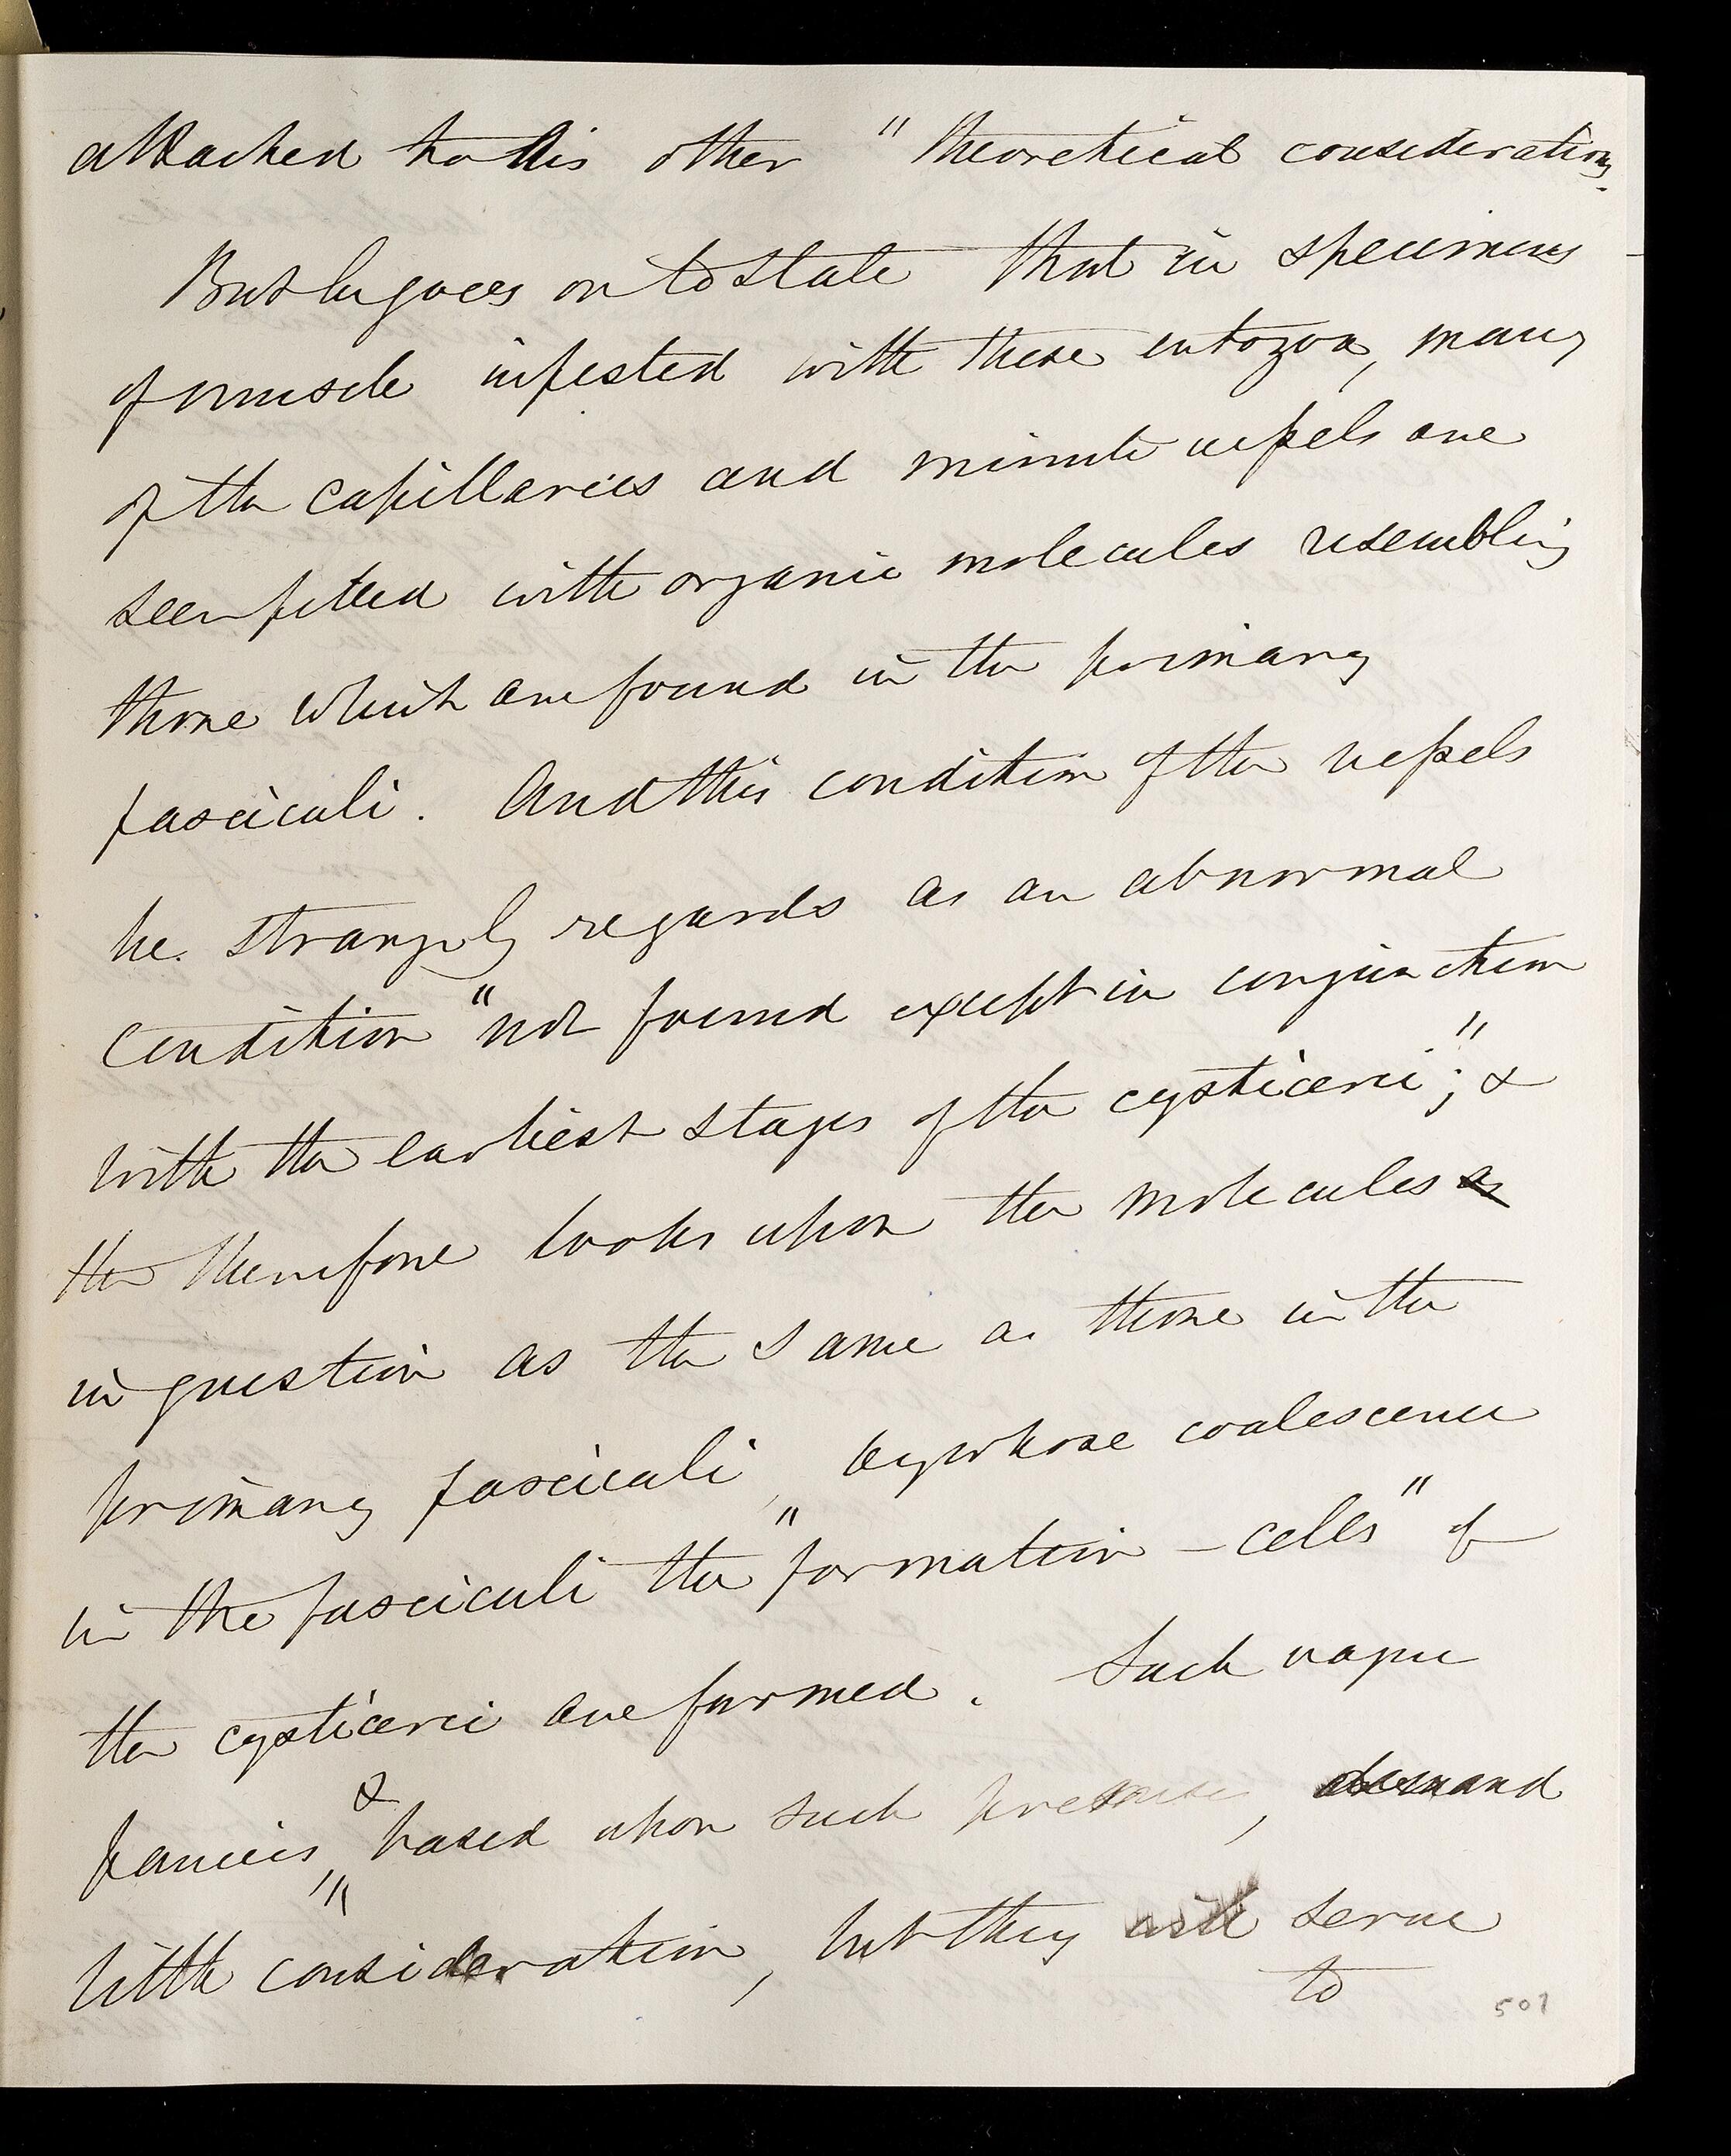 attached to his other "theoretical considerations.
But he goes on to state that in specimens
of muscle infested with these entozoa, many
of the capillaries and minute vessels are
seen filled with organic molecules resembling
those which are found in the primary
fasciculi. And this condition of the vessels
he strangely regards as an abnormal
condition "not found except in conjunction
with the earliest stages of the cysticerci;" &
he therefore looks upon the molecules as
in question as the same as those in the
primary fasciculi, by whose coalescence
in the fasciculi the "formation-cells" of
the cysticerci are formed. Such vague
fancies, & based upon such premises, demand
little consideration, but they will serve
to
507